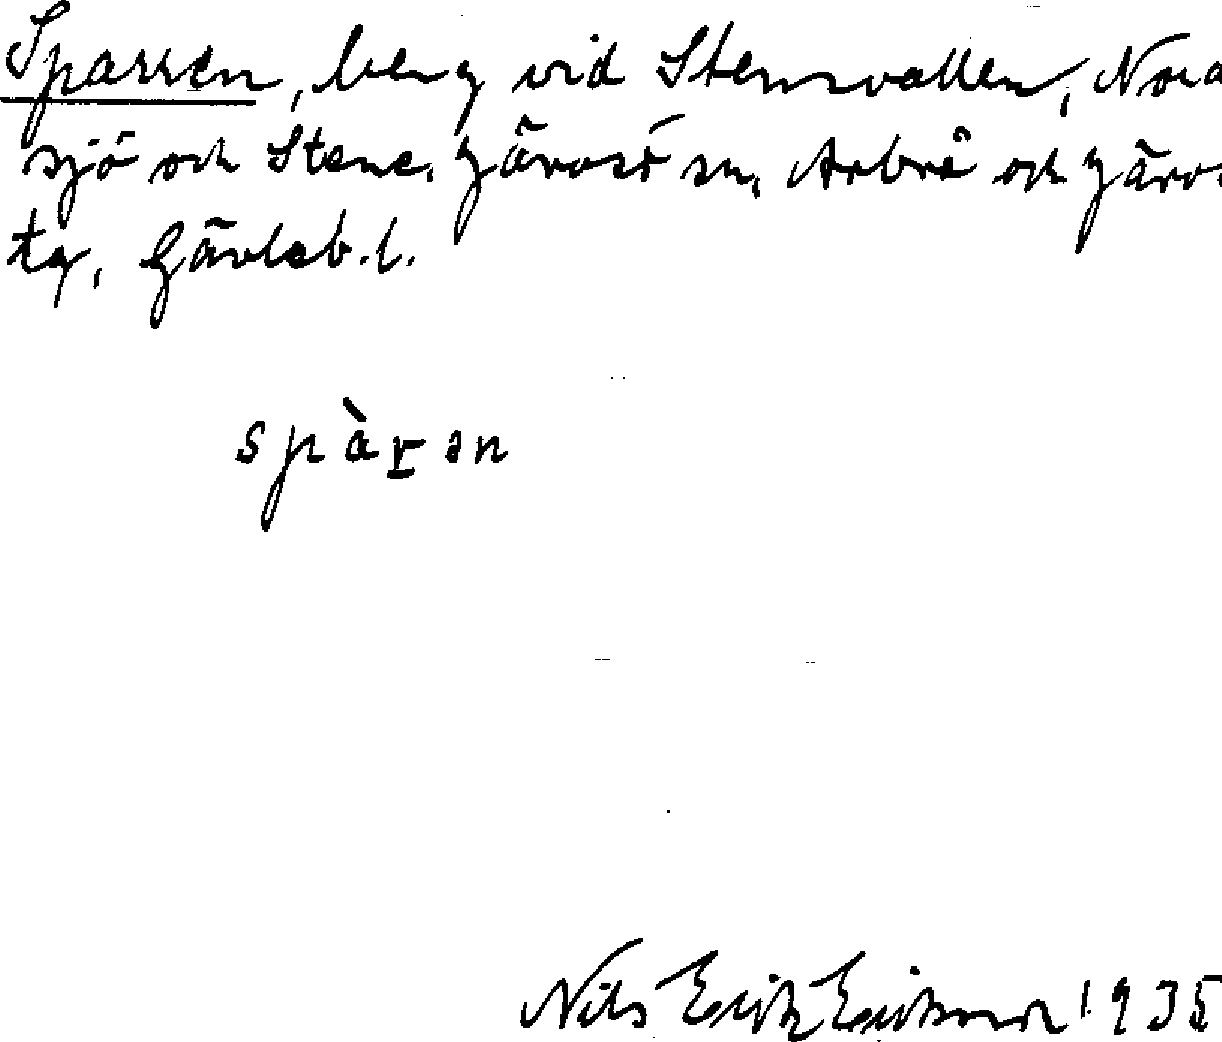 Sparren, berg vid Stensvallen, Nora
sjö och Stene, Järvsö sn, Arbrå och Järv.
tg, Gävleb. l.
spàr̲ən
Nils Erik Eriksson 1935